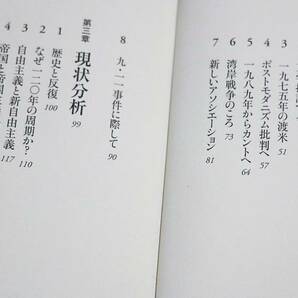 3 一九七五年の渡米 51
4 ポストモダニズム批判へ 57
5 一九八九年からカントへ 64
6 湾岸戦争のころ 73
7 新しいアソシエーション 81
8 九・一一事件に際して 90
第三章 現状分析 99
1 歴史と反復 100
2 なぜ一二〇年の周期か? 110
3 自由主義と新自由主義 117
4 帝国と帝国主義